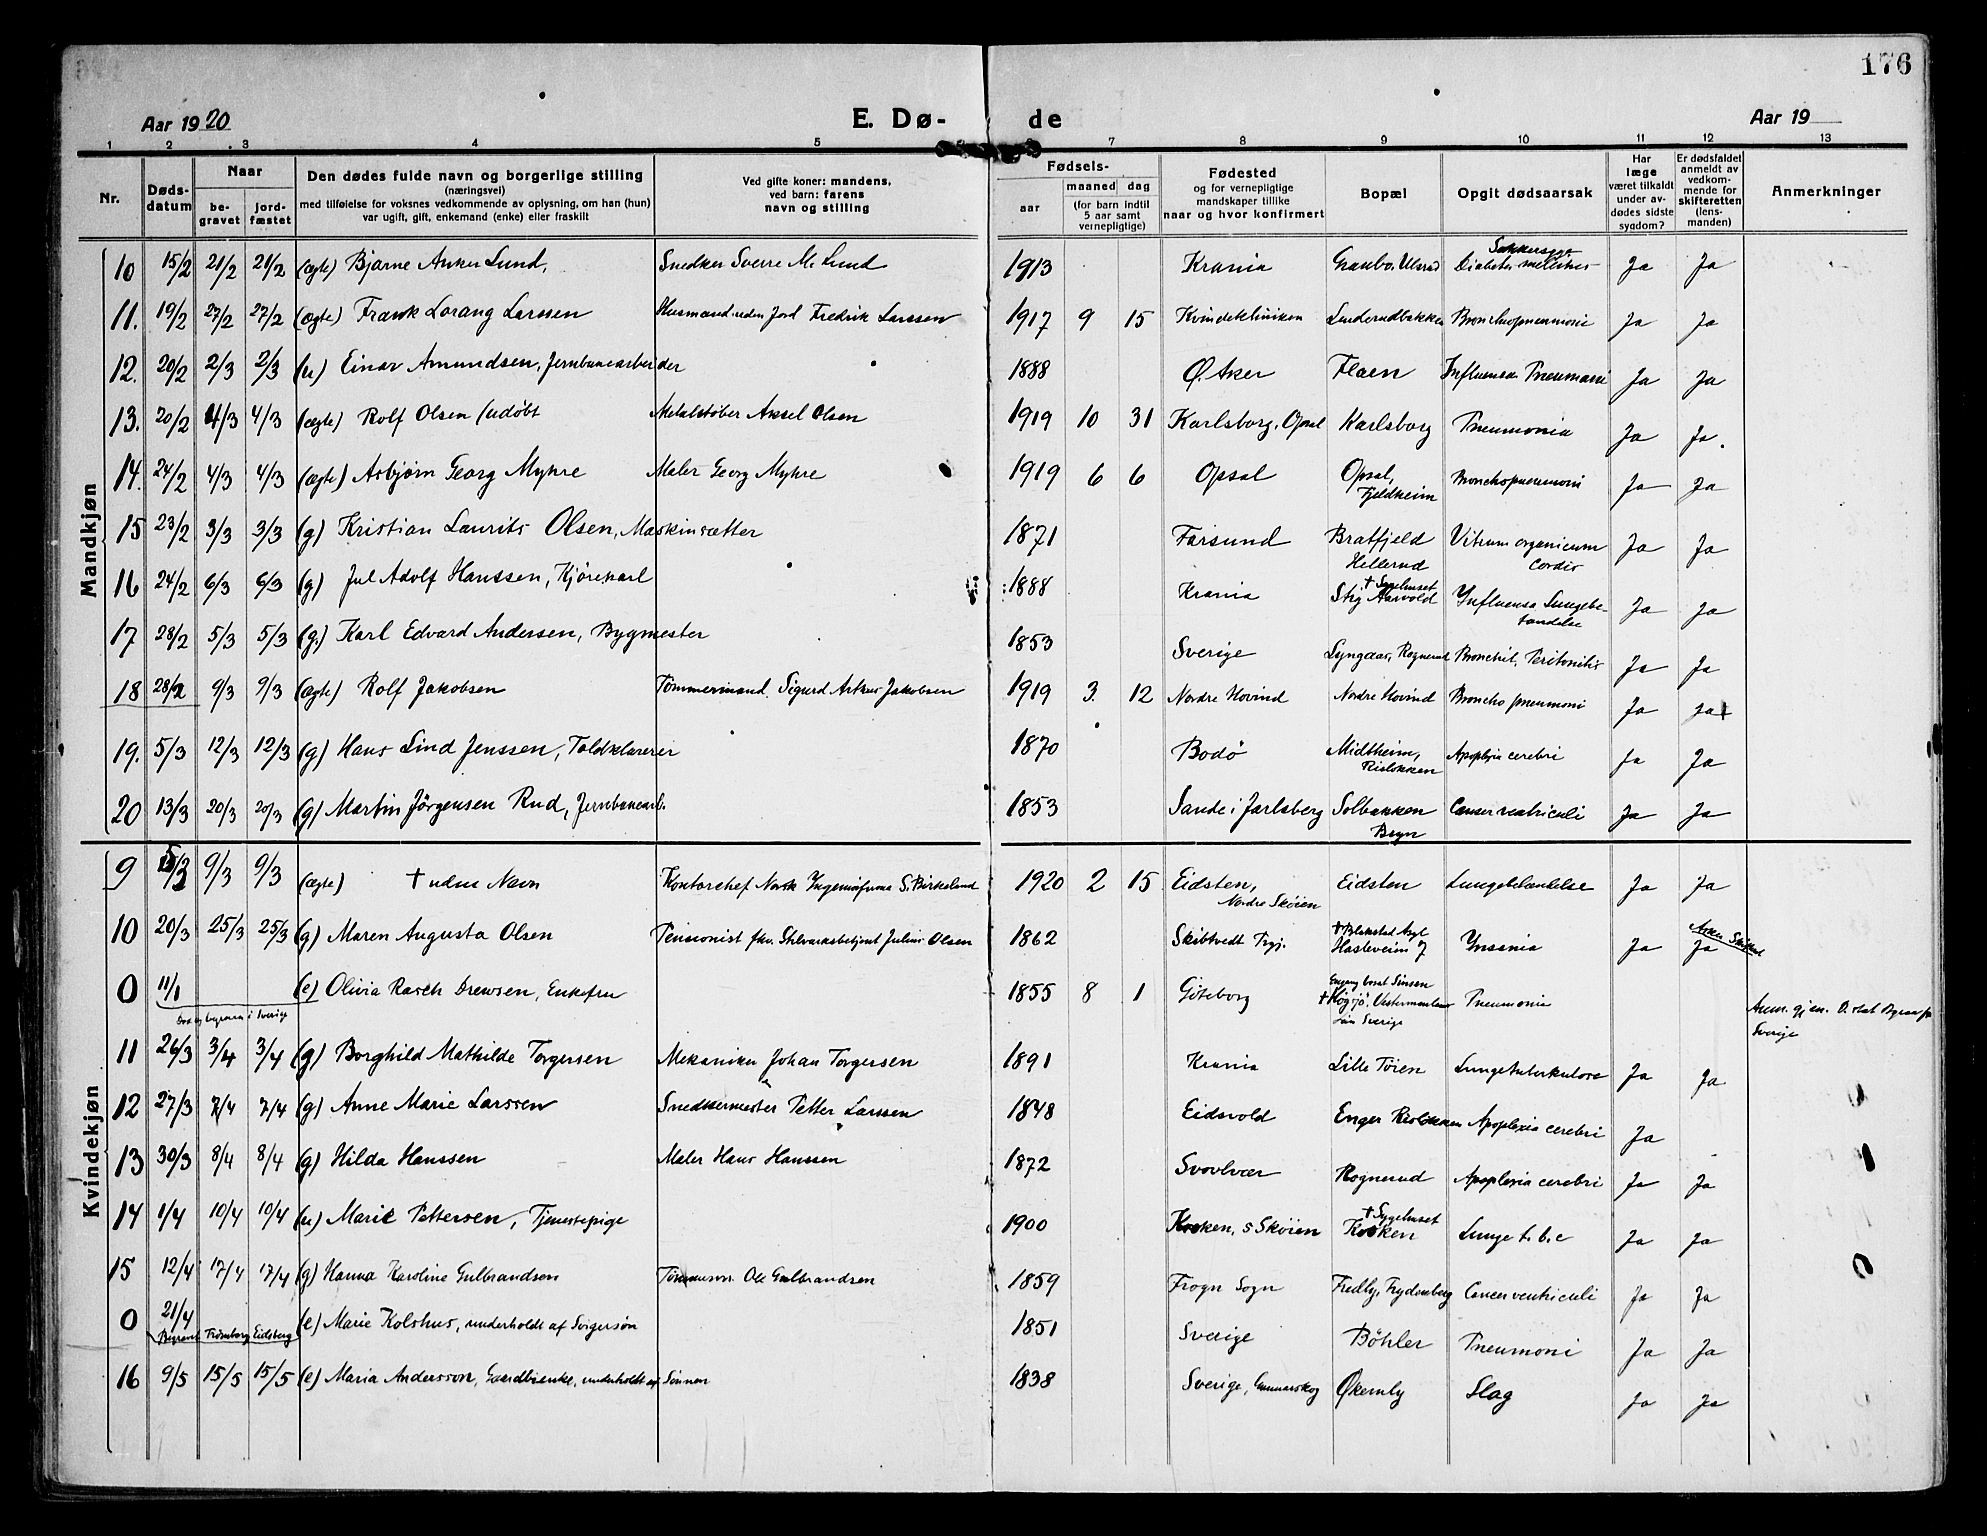 176
Aar 1920 E. Dø- de Aar 19
1 2 3 4 5 7 8 9 10 11 12 13
Nr.
Døds-
datum
Naar
be-
gravet
jord-
fæstet
Den dødes fulde navn og borgerlige stilling
(næringsvei)
med tilføielse for voksnes vedkommende av oplysning, om han (hun)
var ugift, gift, enkemand (enke) eller fraskilt
Ved gifte koner: mandens,
ved barn: farens
navn og stilling
Fødsels-
aar
maaned dag
(for barn indtil
5 aar samt
vernepligtige)
Fødested
og for vernepligtige
mandskaper tillike
naar og hvor konfirmert
Bopæl
Opgit dødsaarsak
Har
læge
været tilkaldt
under av-
dødes sidste
sygdom?
Er dødsfaldet
anmeldt av
vedkom-
mende for
skifteretten
(lens-
manden)
Anmerkninger
Mandkjøn
Sukkersyge
10 15/2 21/2 21/2 (ægte) Bjarne Anker Lund, Snedker Sverre M. Lund 1913 Krania Granbo, Ulsrud Diabetes mellitus Ja Ja
11. 19/2 27/2 27/2 (ægte) Frank Lorang Larssen Husmand uden Jord Fredrik Larssen 1917 9 15 Kvindeklinikken Lunderudbakken Bronchopneumoni Ja Ja
12. 20/2 2/3 2/3 (u) Einar Amundsen, Jernbanearbeider 1888 Ø. Aker Flaen Influensa Pneumoni Ja Ja
13. 20/2 4/3 4/3 (ægte) Rolf Olsen (udøbt Metalstøber Aksel Olsen 1919 10 31 Karlsborg, Opsal Karlsborg Pneumonia Ja Ja.
14. 24/2 4/3 4/3 (ægte) Asbjørn Georg Myhre Maler Georg Myhre 1919 6 6 Opsal Opsal, Bronchopneumoni Ja Ja
Fjeldheim
15 23/2 3/3 3/3 (g) Kristian Laurits Olsen, Maskinsætter 1871 Farsund Bratfjeld Vitium organicum Ja Ja
Hellerud Cordis
16 24/2 6/3 6/3 (g) Jul Adolf Hanssen, Kjørekarl 1888 Krania † Sygehuset
Stig Aarvold Influensa Lungebe- Ja Ja
tændelse
17 28/2 5/3 5/3 (g.) Karl Edvard Andersen, Bygmester 1853 Sverige Lyngaas, Rognerud Bronchit, Peritonitis Ja Ja
18 28/2 9/3 9/3 (ægte) Rolf Jakobsen Tømmermand. Sigurd Arthur Jakobsen 1919 3. 12 Nordre Hovind Nordre Hovind Bronchopneumoni Ja Ja
19. 5/3 12/3 12/3 (g) Hans Lind Jenssen, Toldklarerer 1870 Bodö Midtheim, Apoplexia cerebri Ja Ja
Risløkken
20 13/3 20/3 20/3 (g) Martin Jörgensen Rud, Jernbanearb. 1853 Sande i Jarlsberg Solbakken Cancer ventriculi Ja Ja
Bryn
Kvindekjøn
9 5/3 9/3 9/3 (ægte) † uden Navn Kontorchef Norsk Ingeniørfirma S. Birkelund 1920 2 15 Eidsten, Eidsten Lungebetændelse Ja Ja
Nordre Skøien
10 20/3 25/3 25/3 (g) Maren Augusta Olsen Pensionist fhv. Julius Olsen 1862 Skibtvedt † Blakstad Asyl
Hasleveien 7 Insania Ja Ja Aker
0 11/1 (e) Olivia Rasch Drewsen, Enkefru 1855 8 1 Göteborg Sinsen
† Vestermanlands Pneumonia
Län Sverige
Død og begraven i Sverige
Anm.
Sverige
11 26/3 3/4 3/4 (g) Borghild Mathilde Torgersen Mekaniker Johan Torgersen 1891 Krania Lille Tøien Lungetuberkulose Ja Ja
12 27/3 7/4 7/4 (g) Anne Marie Larssen Snedkermester Petter Larssen 1848 Eidsvold Enger Risløkken Apoplexia cerebri Ja
13 30/3 8/4 8/4 (g) Hilda Hanssen Maler Hans Hanssen 1872 Svovlvær Rognerud Apoplexia cerebri Ja Ja
14 1/4 10/4 10/4 (u) Marie Pettersen, Tjenestepige 1900 Kroken, S Skøien † Sygehuset
Kroken Lunge t.b.c Ja Ja
15 12/4 17/4 17/4 (g) Hanna Karoline Gulbrandsen Tømmerm. Ole Gulbrandsen 1859 Frogn Sogn Fredly, Frydenberg Cancer ventriculi Ja Ja
0 21/4 (e) Marie Kolshus, underholdt af Svigersøn 1851 Sverige Böhler Pneumoni Ja Ja
Begravet Trømborg Eidsberg
16 9/5 15/5 15/5 (e) Maria Andersson, Gaardbrenke, underholdt af Sønnen 1838 Sverige, Gunnarskog Økernly Slag Ja Ja